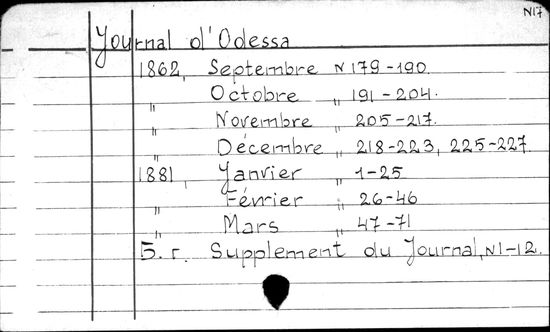 N17
Journal d'Odessa
1862, Septembre N 179-190.
" Octobre " 191-204.
" Novembre " 205-217.
" Décembre " 218-223, 225-227.
1881, Janvier " 1-25
" Février " 26-46
" Mars " 47-71
Б. г. Supplement du Journal, N1-12.